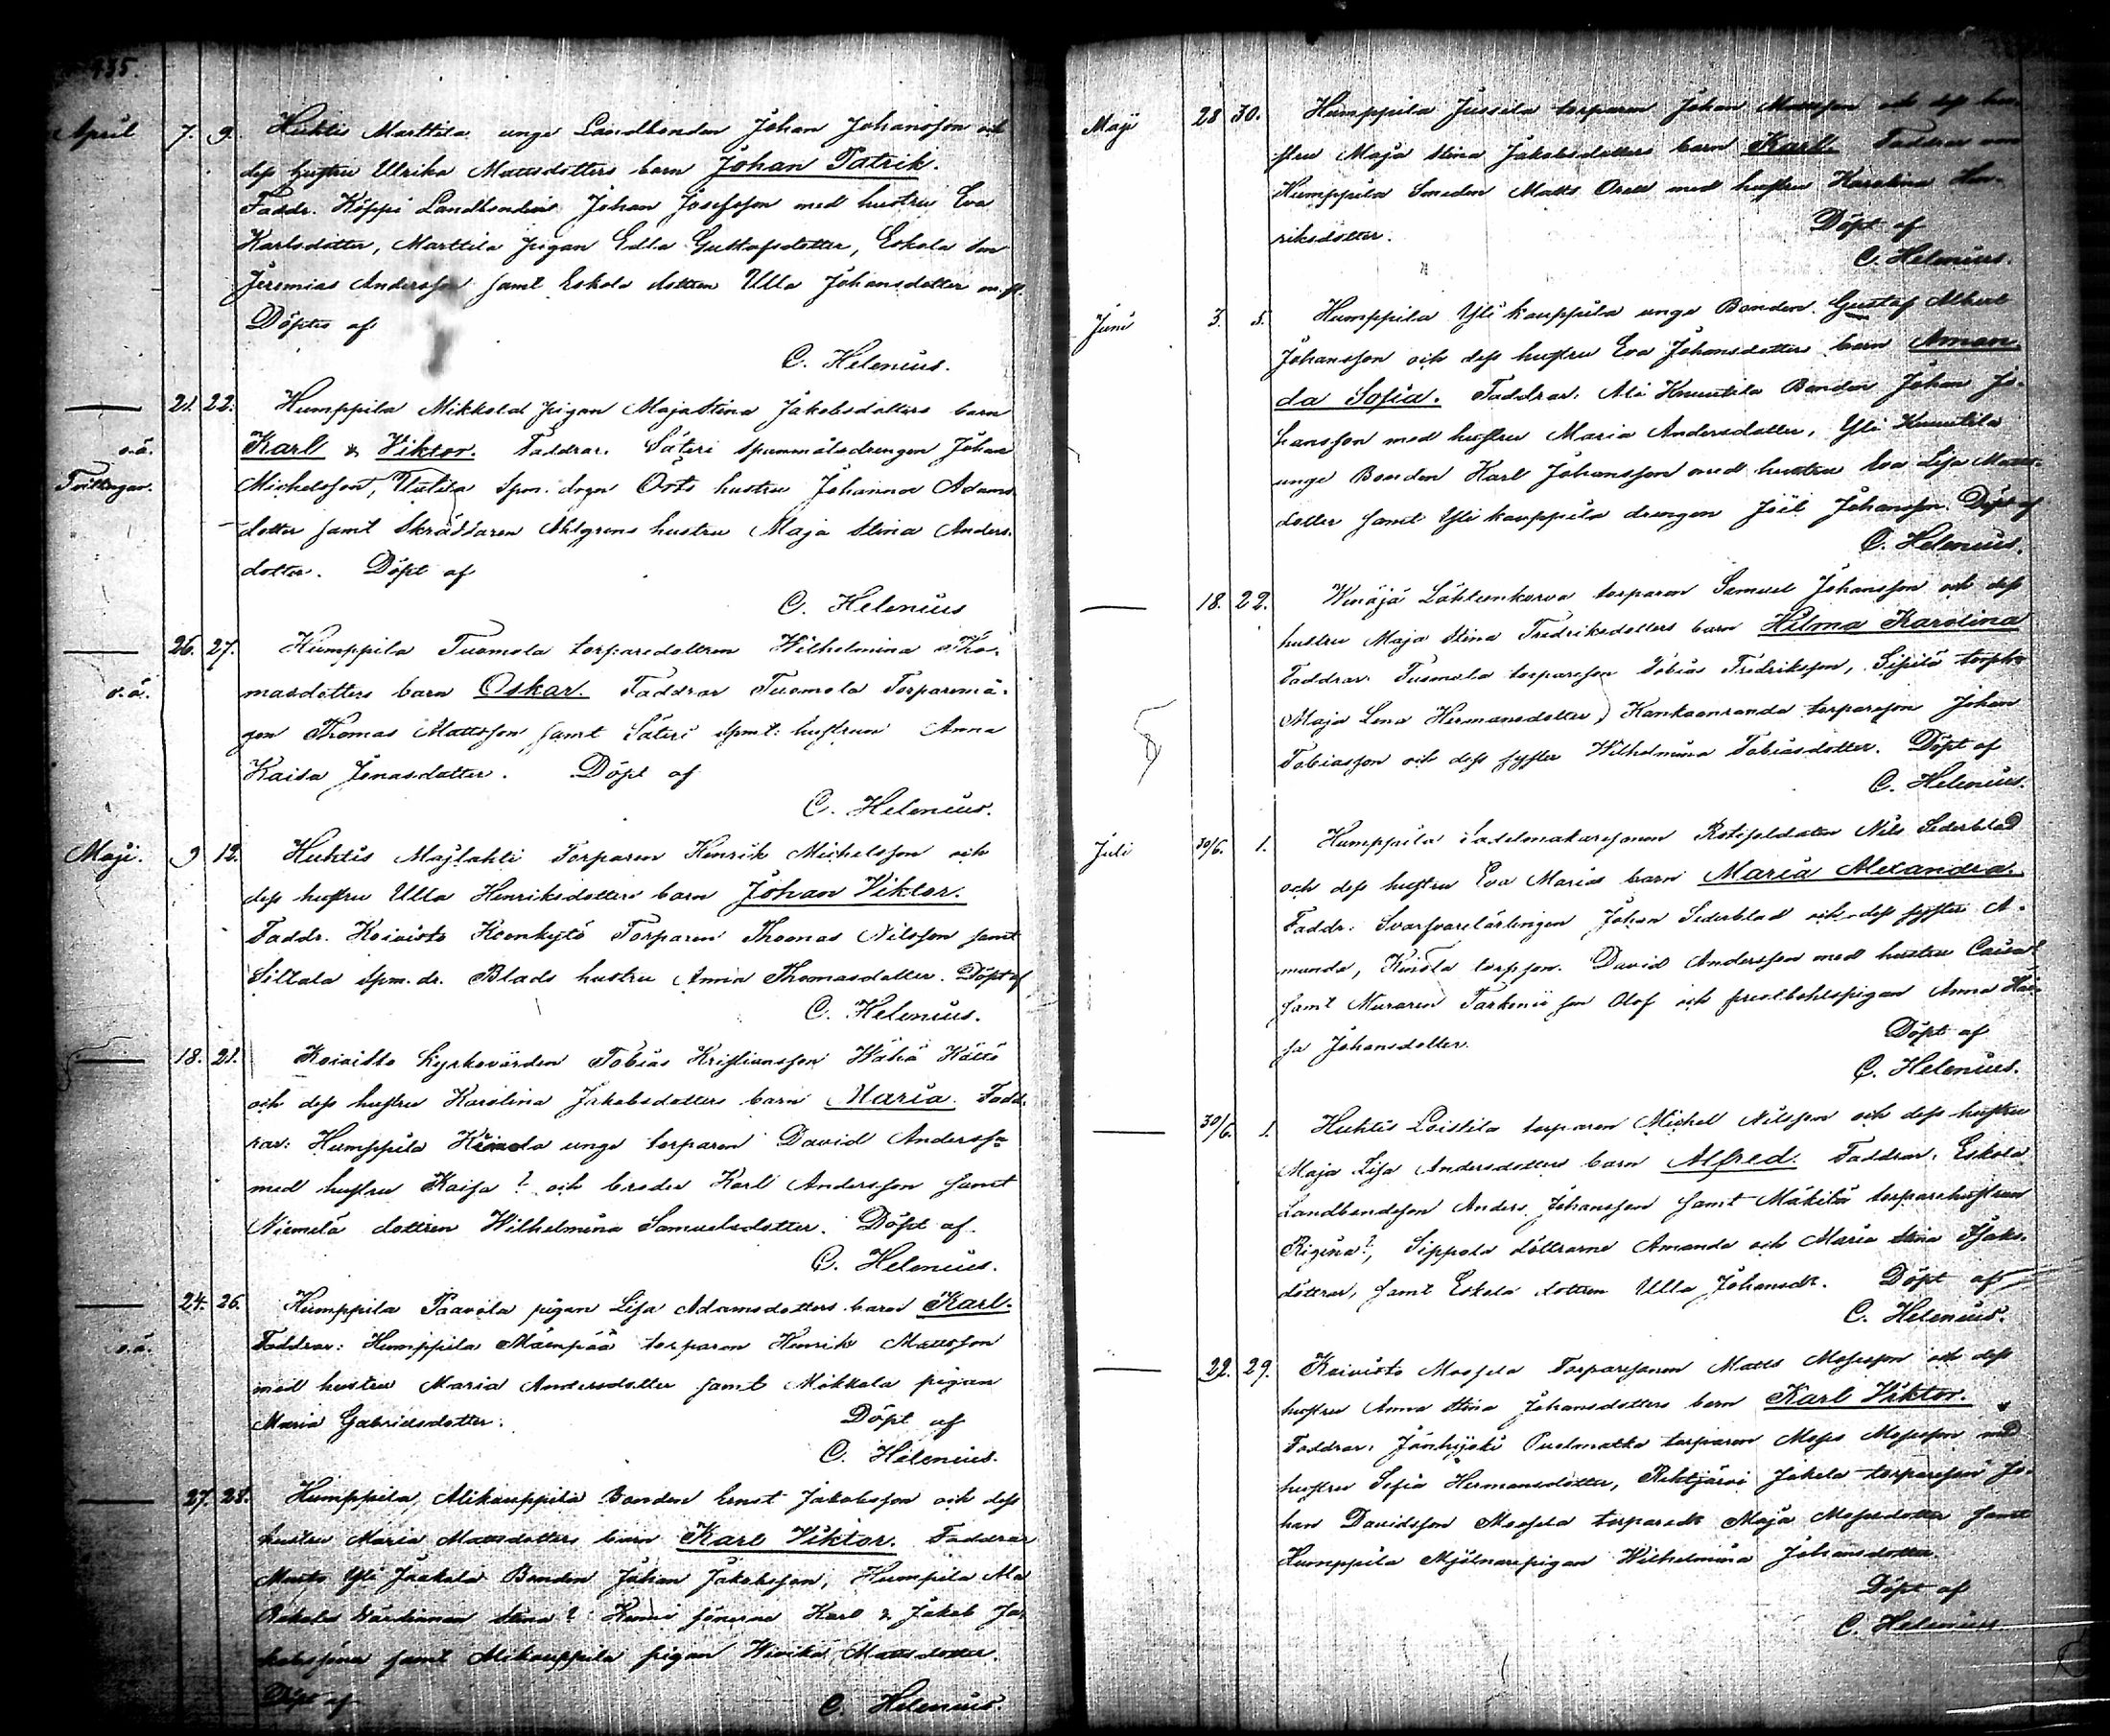 935.
April 7. 9. Huhtis Marttila unge Landbonden Johan Johansson och
dess hustru Ulrika Mattsdotters barn Johan Patrik.
Faddr. Köppi Landbonden Johan Josefsson med hustru Eva
Karlsdotter, Marttila pigan Edla Gustafsdotter, Eskola son
Jeremias Andersson samt Eskola dottren Ulla Johansdotter
Döptes af
C. Helenius.
21. 22. Humppila Mikkola pigan Maja Stina Jakobsdotters barn
o.ä. Karl & Viktor. Faddrar: Säteri Spanmålsdrengen Johan
Tvillingar. Michelsson, Uutela Spm. drgn Örts hustru Johanna Adams
dotter samt Skräddaren Ahlgrens hustru Maja Stina Anders-
dotter. Döpt af
C. Helenius
26. 27. Humppila Tuomola torparedottren Wilhelmina Tho-
o.ä. masdotters barn Oskar. Faddrar Tuomola Torparemå-
gen Thomas Mattsson samt Säteri Spmt. hustrun Anna
Kaisa Jonasdotter. Döpt af
C. Helenius.
Maji. 9 12. Huhtis Majlahti Torparen Henrik Michelsson och
dess hustru Ulla Henriksdotters barn Johan Viktor.
Faddr. Koivisto Keenkytö Torparen Thomas Nilsson samt
Sillala Spm. dr. Blads hustru Anna Thomasdotter. Döpt af
C. Helenius.
18. 21. Koivisto Kyrkovärden Tobias Kristiansson Wähä Kättö
och dess hustru Karolina Jakobsdotters barn Maria. Fadd-
rar: Humppila unge torparen David Andersson
med hustru Kaisa? och broder Karl Andersson samt
Niemelä dottren Wilhelmina Samuelsdotter. Döpt af
C. Helenius.
24. 26. Humppila Paavola pigan Lisa Adamsdotters barn Karl.
o.ä. Faddrar: Humppila Mäenpää torparen Henrik Mattsson
med hustru Maria Andersdotter samt Mikkola pigan
Maria Gabrielsdotter. Döpt af
C. Helenius.
27. 28. Humppila Alikauppila Bonden Ernst Jakobsson och dess
hustru Maria Mattsdotters barn Karl Viktor. Faddrar
Yli Jaakola Bonden Johan Jakobsson, Humpila Ala
Stina? sönerna Karl & Jakob Ja-
kobssöner samt Alikauppila pigan Wivika Mattsdotter.
Döpt af C. Helenius.
Maji 28 30. Humppila Jussila torparen Johan Mattsson och dess hu-
stru Maja Stina Jakobsdotters barn Karl. Faddrar
Humppila Smeden Matts med hustru Karolina Hen-
riksdotter. Döpt af
C. Helenius.
Juni 3. 5. Humppila Yli kauppila unge Bonden Gustaf Albert
Johansson och dess hustru Eva Johansdotters barn Aman-
da Sofia. Faddrar: Ali Knuutila Bonden Johan Jo-
hansson med hustru Maria Andersdotter, Yli Knuutila
unge Bonden Karl Johansson med hustru Eva Lisa Matts-
dotter samt Yli kauppila drengen Joël Johansson. Döpt af
C. Helenius.
18. 22. Winäjä Lähteenkorva torparen Samuel Johansson och dess
hustru Maja Stina Fredriksdotters barn Hilma Karolina
Faddrar: Tuomola torpareson Tobias Fredriksson, Sipilä
Maja Lena Hermansdotter, Kankaanranda torpareson Johan
Tobiasson och dess syster Wilhelmina Tobiasdotter. Döpt af
C. Helenius.
Juli 30/6. 1. Humppila Sadelmakaresonen Rotesoldaten Nils Sederblad
och dess hustru Eva Marias barn Maria Alexandra.
Faddr. Svarfvarelärlingen Johan Sederblad och dess syster A-
manda, torpson. David Andersson med hustru
samt Muraren son Olof och prestbohlspigan Anna
sa Johansdotter. Döpt af
C. Helenius.
30/6. 1. Huhtis Loistila torparen Michel Nilsson och dess hustru
Maja Lisa Andersdotters barn Alfred. Faddrar: Eskola
Landbondeson Anders Johansson samt Mäkilä torparehustrun
Regina?, Sippola döttrarne Amanda och Maria Stina Isaks-
döttrar, samt Eskola dottren Ulla Johansdr. Döpt af
C. Helenius.
22. 29. Koivisto Moosela Torparesonen Matts Mosesson och dess
hustru Anna Stina Johansdotters barn Karl Viktor.
Faddrar: Jänhijoki torparen Moses Mosesson med
hustru Sofia Hermansdotter, Rehtijärvi Jakola torpareson Jo-
han Davidsson Moosela torparedr Maja Mosesdotter samt
Humppila Mjölnarepigan Wilhelmina Johansdotter.
Döpt af
C. Helenius